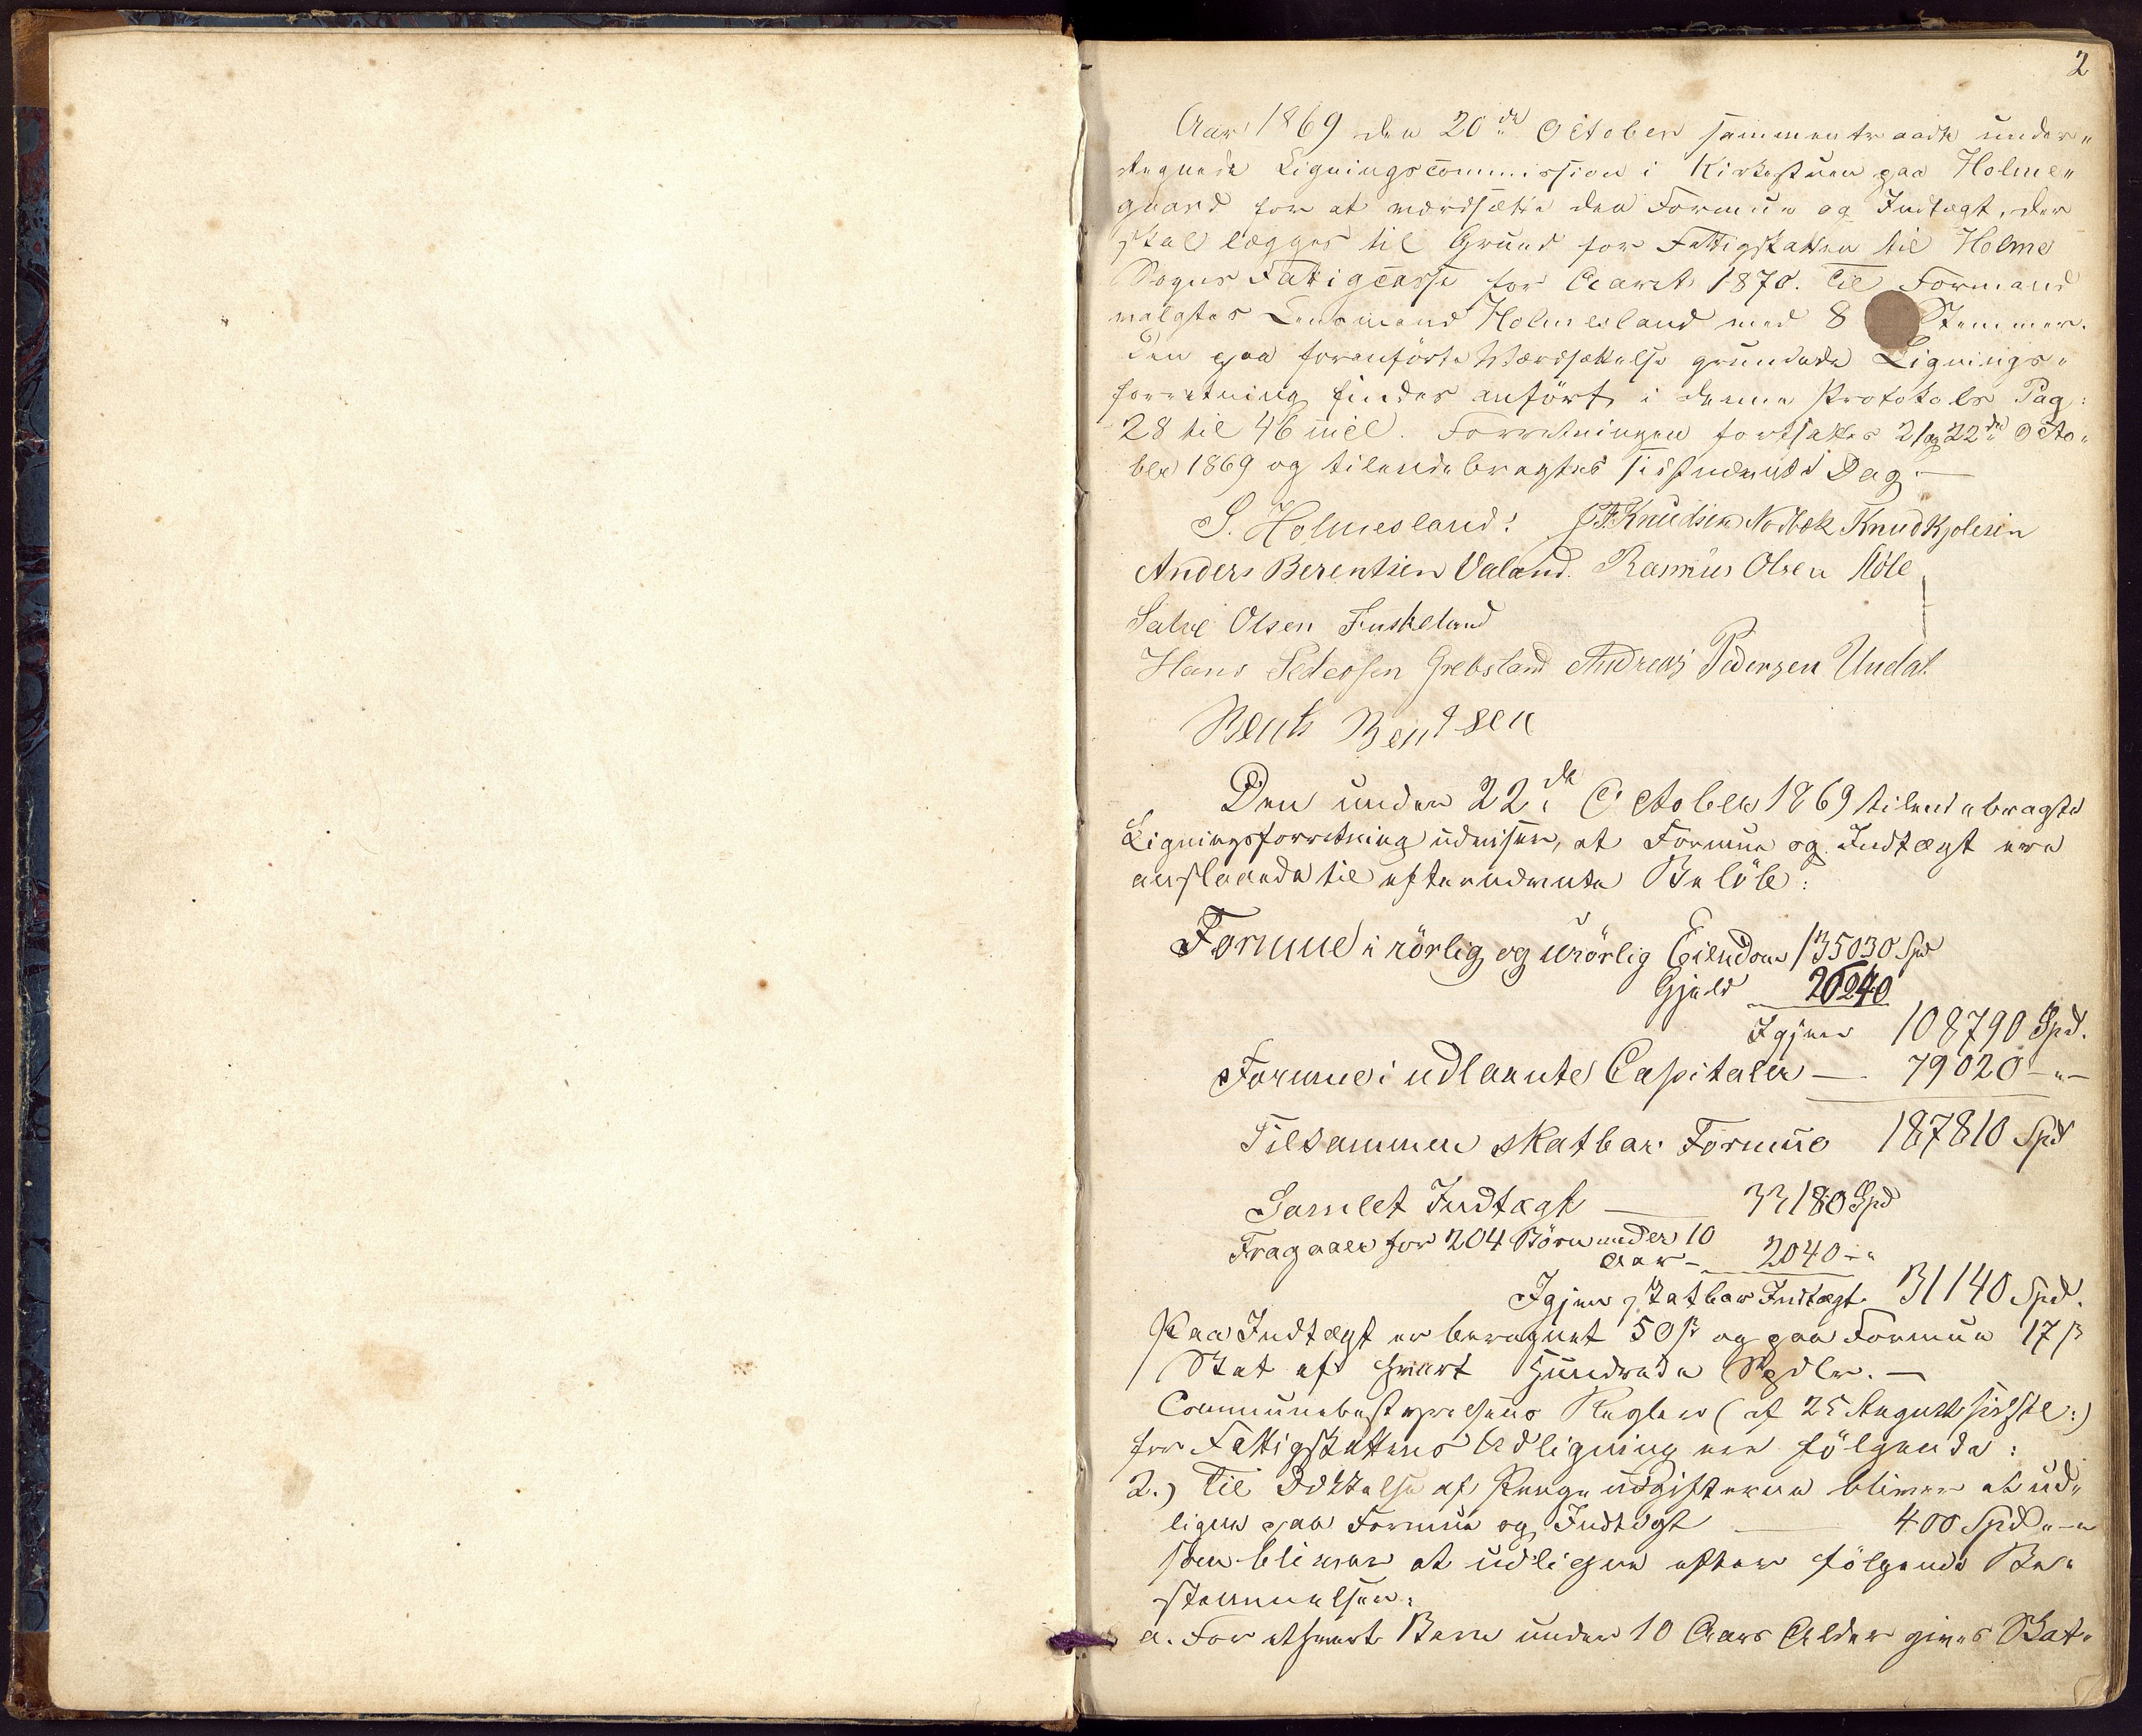 2
Aar 1869 den 20de October sammentraadte under„
tegnede Ligningscommission i Kirkestuen paa Holme„
gaard for at værdsætte den Formue og Indtægt, der
skal lægges til Grund for Fattigskatten til Holme
Sogns Fattigcasse for Aaret 1870. Til Formand
valgtes Lensmand Holmesland med 8 Stemmer.
Den paa foranförte Værdsættelse grundede Lignings„
forretning findes anfört i denne Protokols Pag:
28 til 46 incl. Forretningen fortsattes 21 og 22de Octo„
ber 1869 og tilendebragtes sidstnævnte Dag. —
S. Holmesland. Knudsen Nodbek Knud Kjolesen
Anders Berentsen Valand. Rasmus Olsen Höle
Salve Olsen Fuskeland
Hans Pedersen Grebsland Andreas Pedersen Undal.
Bent Bentsen
Den under 22de October 1869 tilendebragte
Ligningsforretning udviser, at Formue og Indtægt ere
anslaaede til efternævnte Belöb:
Formue i rörlig og urörlig Eiendom 135030 Spd
Gjæld 26240
Igjen 108790 Spd.
Formue i udlaante Capitaler — 79020 -„-
Tilsammen skatbar Formue 187810 Spd
Samlet Indtægt — 33180 Spd
Fragaaer for 204 Börn under 10
Aar — 2040 -„
Igjen skatbar Indtægt 31140 Spd.
Paa Indtægt er beregnet 50 ß og paa Formue 17 ß
Skat af hvert Hundrede Spdlr. —
Communebestyrelsens Regler (af 25 August sidstl:)
for Fattigskattens Udligning ere fölgende:
2.) Til Dækkelse af Pengeudgifterne bliver at ud„
ligne paa Formue og Indtægt — 400 Spd „-„
som bliver at udligne efter fölgende Be„
stemmelser:
a. For ethvert Barn under 10 Aars Alder gives Skat„